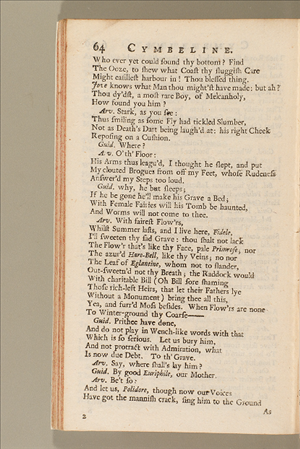 64 CYMBELINE.
Who ever yet could sound thy bottom? Find
The Ooze, to shew what Coast thy sluggish Care
Might easiliest harbour in! Thou blessed thing,
Jove knows what Man thou might'st have made: but ah?
Thou dy'dst, a most rare Boy, of Melcanholy,
How found you him?
Arv. Stark, as you see:
Thus smiling as some Fly had tickled Slumber,
Not as Death's Dart being laugh'd at: his right Cheek
Reposing on a Cushion.
Guid. Where?
Arv. O'th' Floor:
His Arms thus leagu'd, I thought he slept, and put
My clouted Brogues from off my Feet, whose Rudeness
Answer'd my Steps too loud.
Guid. why, he but sleeps;
If he be gone he'll make his Grave a Bed;
With Female Fairies will his Tomb be haunted,
And Worms will not come to thee.
Arv. With fairest Flow'rs,
Whilst Summer lasts, and I live here, Fidele,
I'll sweeten thy sad Grave: thou shalt not lack
The Flow'r that's like thy Face, pale Primrose; nor
The azur'd Hare-Bell, like thy Veins; no nor
The Leaf of Eglantine, whom not to slander,
Out-sweetn'd not thy Breath; the Raddock would
With charitable Bill (Oh Bill sore shaming
Those rich-left Heirs, that let their Fathers lye
Without a Monument) bring thee all this,
Yea, and furr'd Moss besides. When Flow'rs are none
To Winter-ground thy Coarse——
Guid. Prithee have done,
And do not play in Wench-like words with that
Which is so serious. Let us bury him,
And not protract with Admiration, what
Is now due Debt. To th' Grave.
Arv. Say, where shall's lay him?
Guid. By good Euriphile, our Mother.
Arv. Be't so:
And let us, Polidore, though now our Voices
Have got the mannish crack, sing him to the Ground
2 As